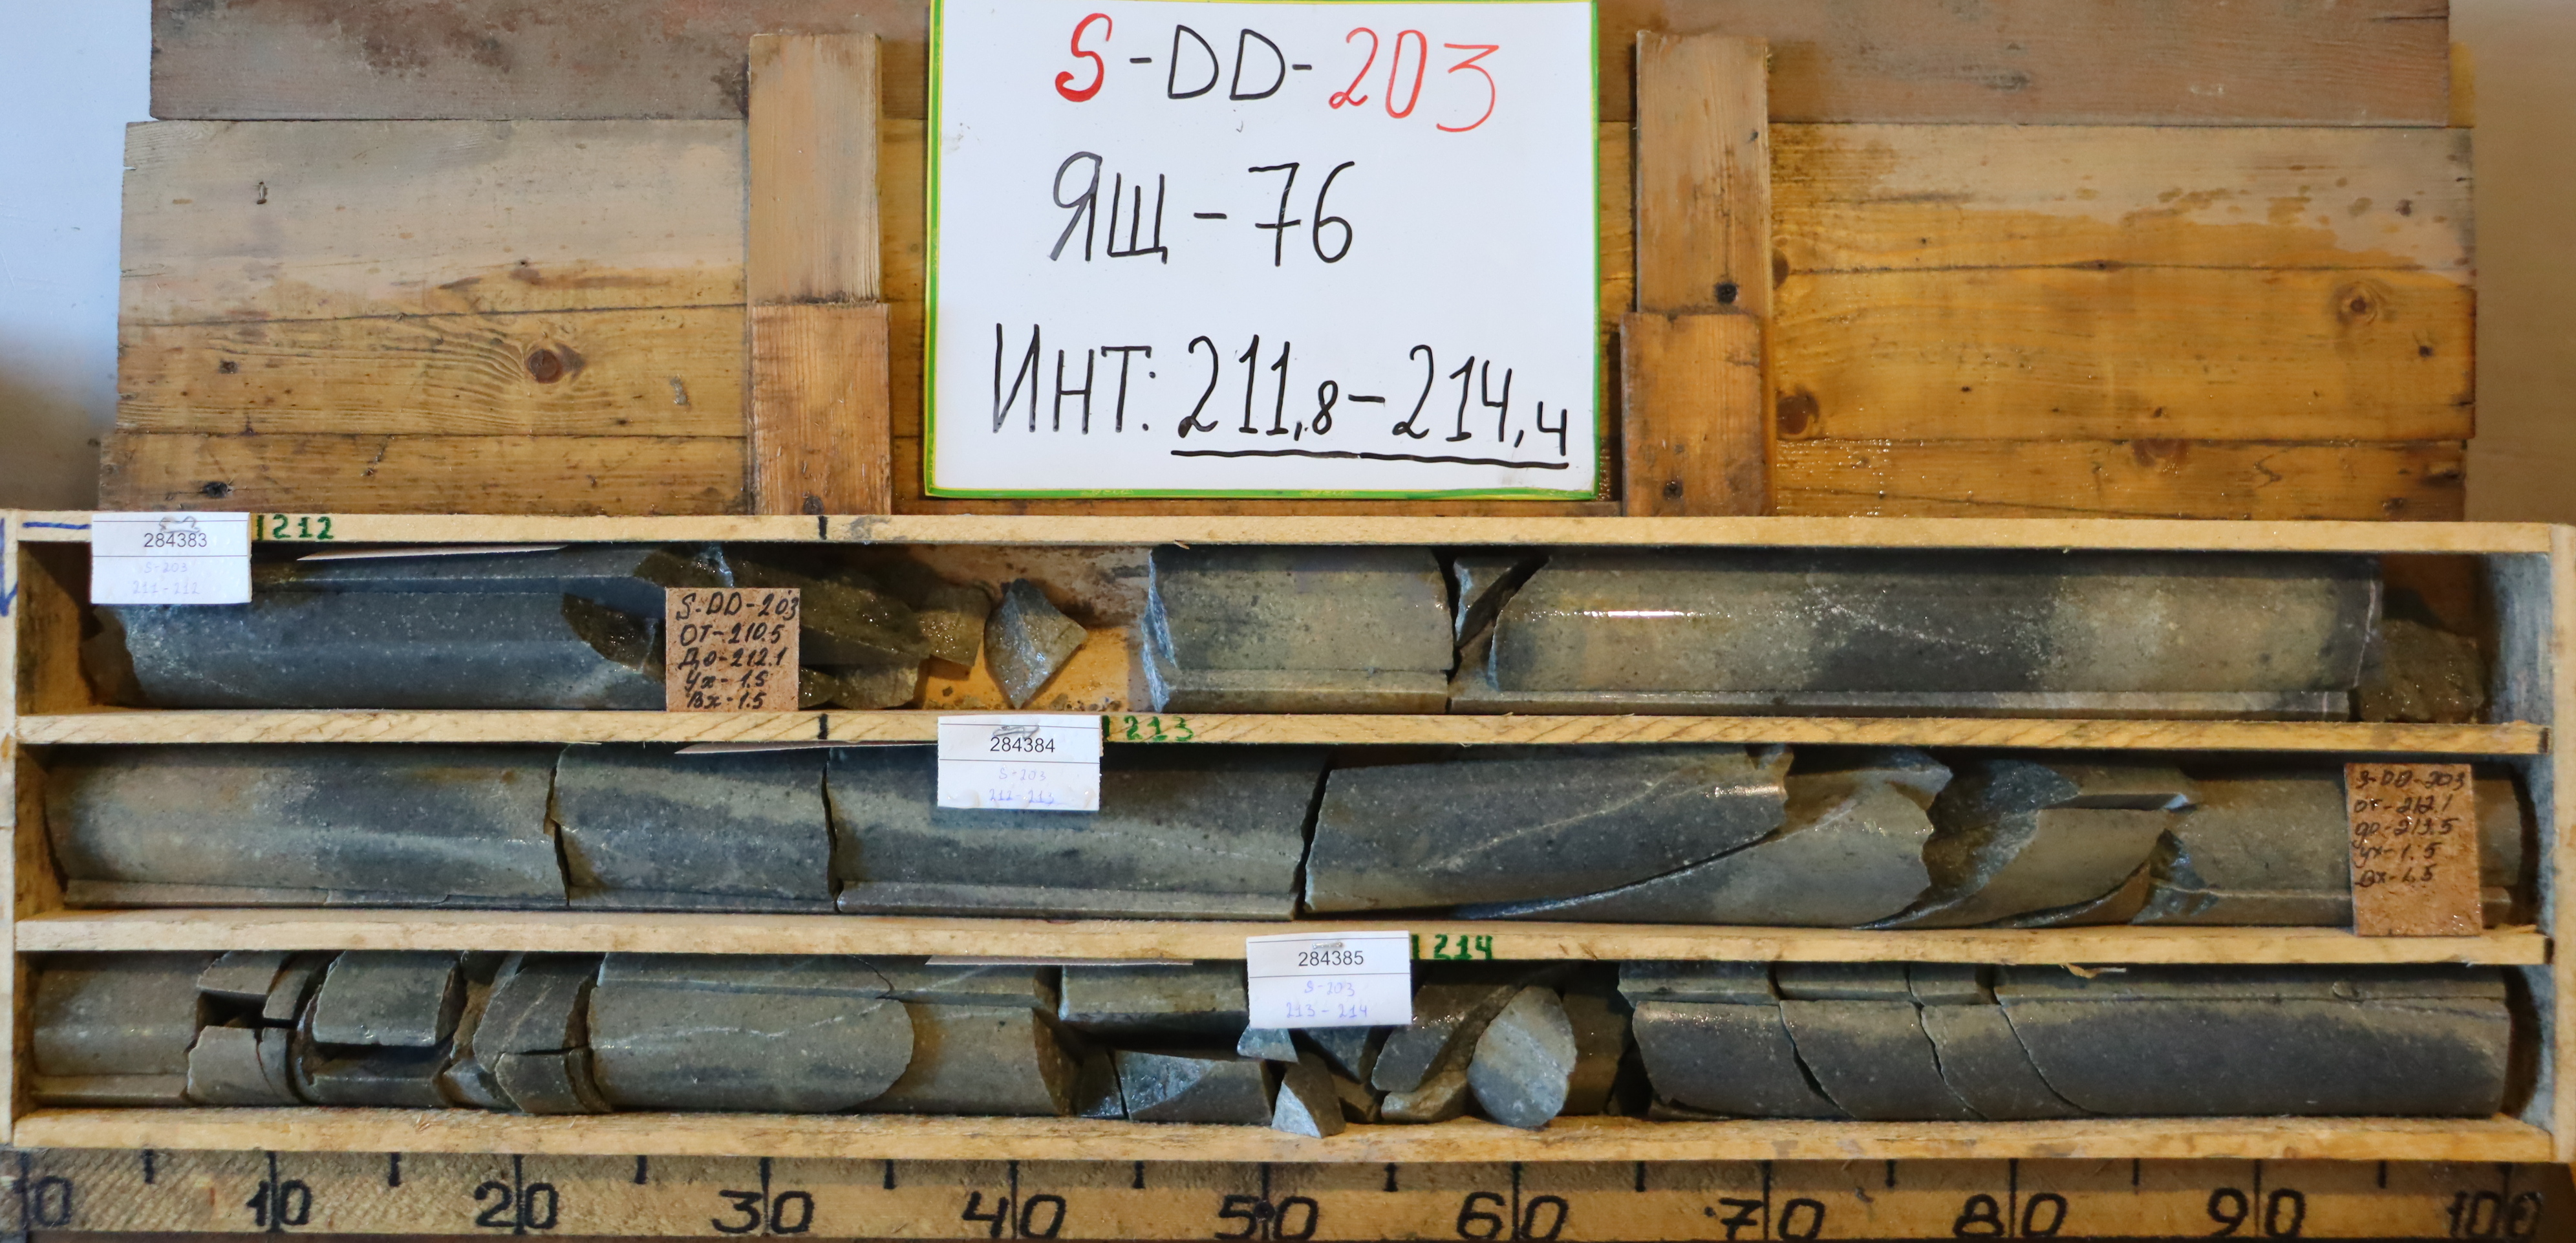 S-DD-203
ЯЩ-76
ИНТ: 211,8-214,4
284383
S-203
211-212
1212
S-DD-203
ОТ-210.5
До-212.1
Ух-1.5
Вх-1.5
284384
S-203
212-213
1213
S-DD-203
от-212.1
до-213.5
ух-1.5
Вх-1.5
284385
S-203
213-214
1214
0 10 20 30 40 50 60 70 80 90 100